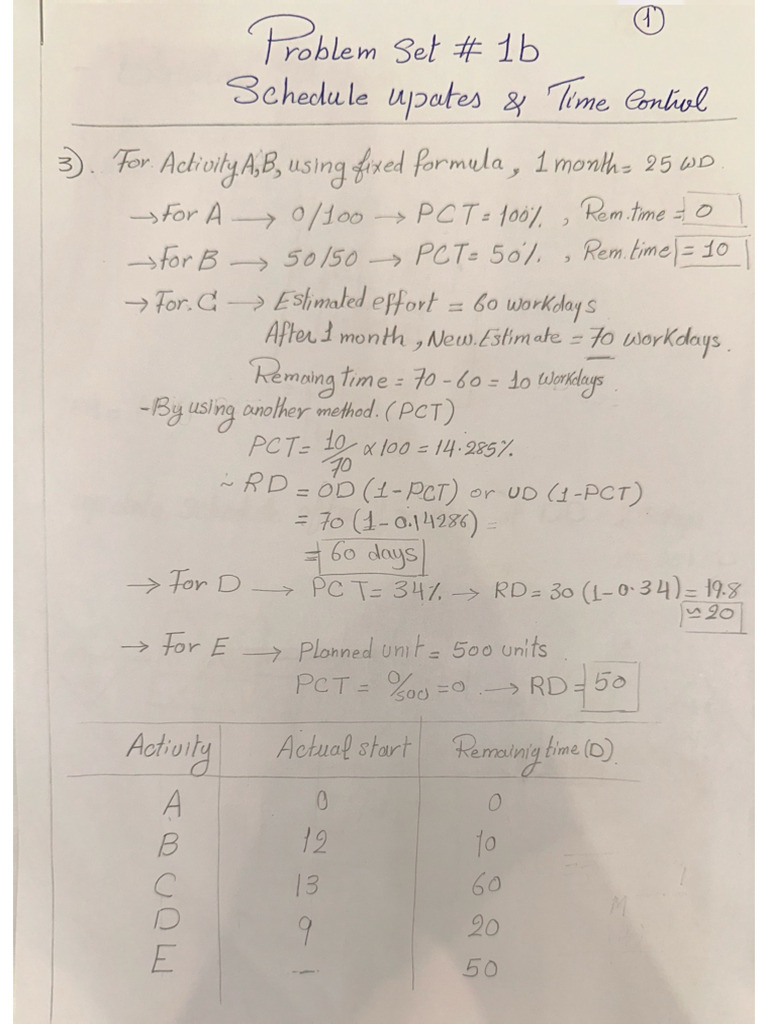 1
Problem Set # 1b
Schedule upates & Time Control
3). For Activity A,B, using fixed formula, 1 month = 25 WD.
→ For A → 0/100 → PCT = 100%, Rem.time = 0
→ For B → 50/50 → PCT = 50%, Rem.time = 10
→ For.C → Estimated effort = 60 workdays
After 1 month, New.Estimate = 70 workdays.
Remaing time = 70 - 60 = 10 Workdays
- By using another method. (PCT)
PCT = 10/70 x 100 = 14.285%.
~ RD = OD (1-PCT) or UD (1-PCT)
= 70 (1-0.14286) =
= 60 days
→ For D → PCT = 34% → RD = 30 (1-0.34) = 19.8
≃ 20
→ For E → Planned unit = 500 units
PCT = 0/500 = 0 → RD = 50
Activity Actual start Remainig time (D).
A 0 0
B 12 10
C 13 60
D 9 20
E — 50